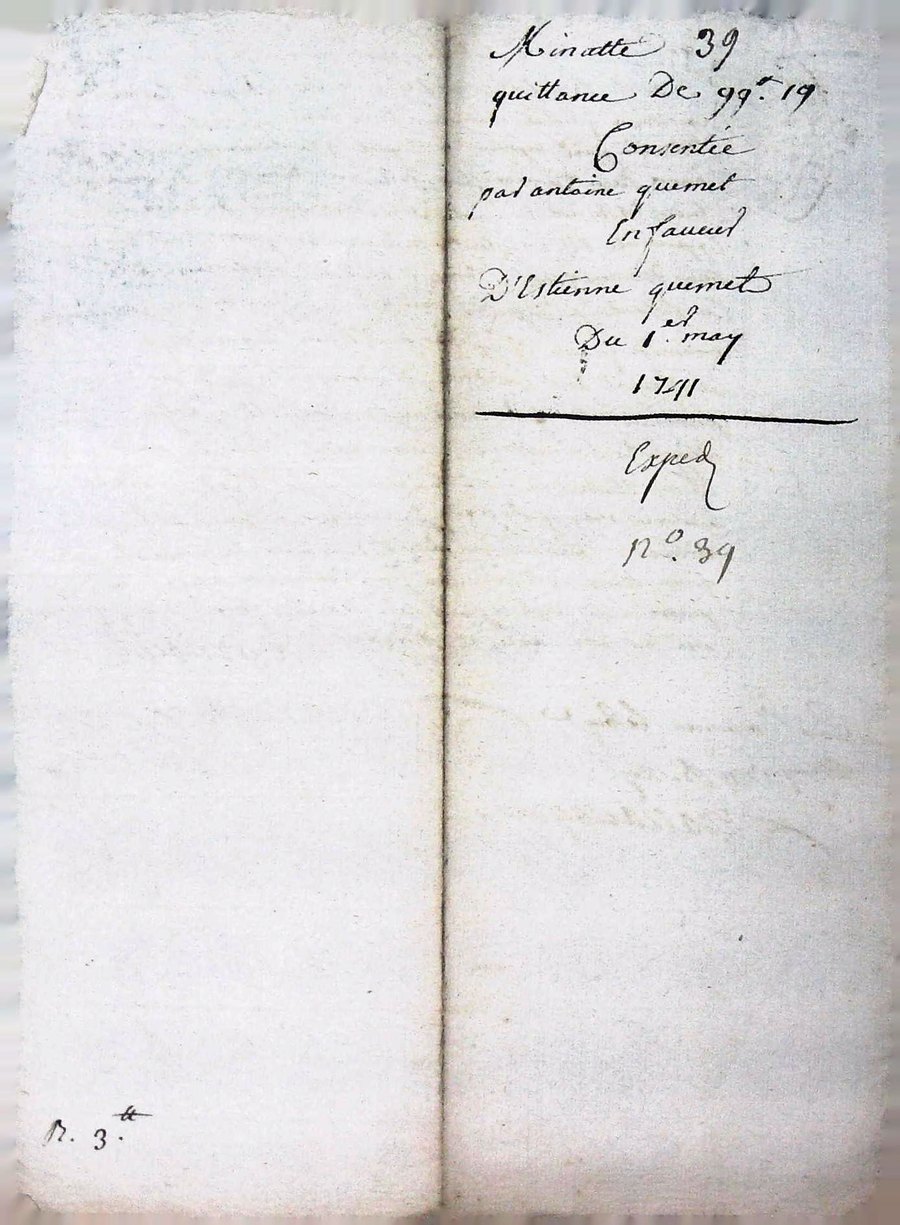 Minatte 39
quittance De 99.₶ 19
Consentée
par antoine quemet
En faveur
D'Estienne quemet
Du 1.er may
1741
Exped
N.o 39
R. 3.₶